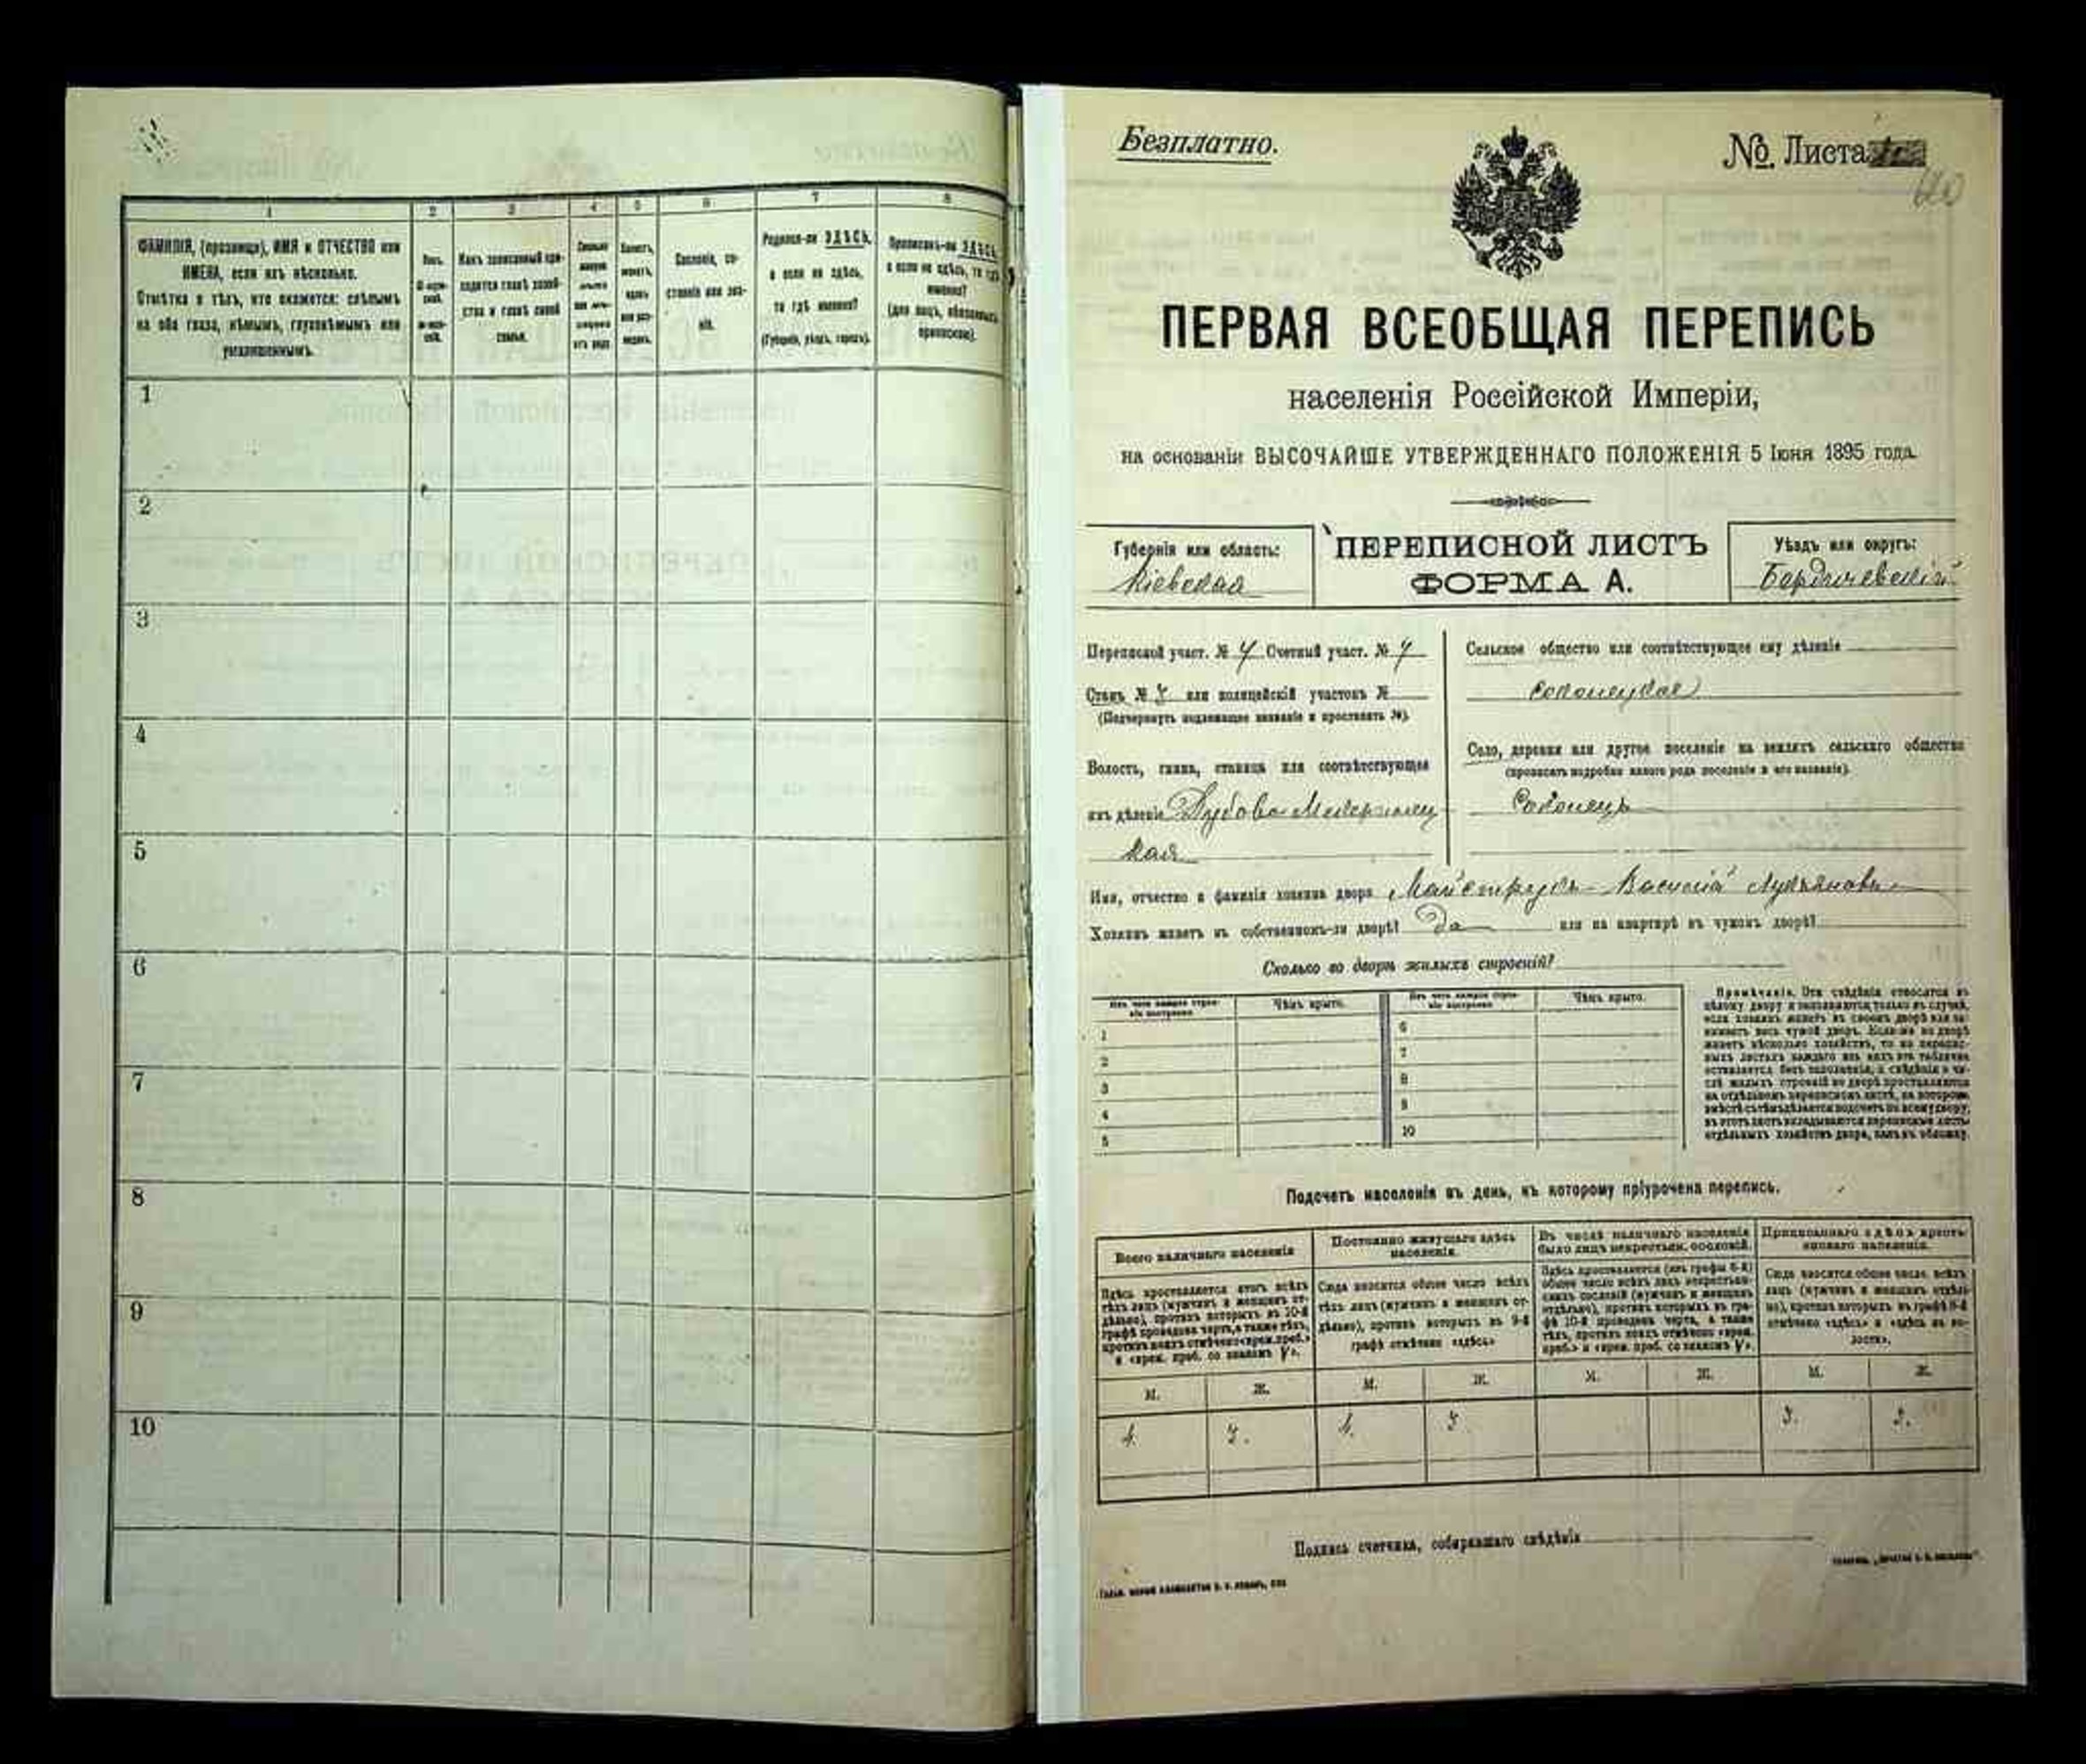 1 2 3 4 5 6 7 8
ФАМИЛІЯ, (прозвище), ИМЯ и ОТЧЕСТВО или
ИМЕНА, если ихъ нѣсколько.
Отмѣтка о тѣхъ, кто окажется: слѣпымъ
на оба глаза, нѣмымъ, глухонѣмымъ или
умалишеннымъ.
Полъ.
Какъ записанный при-
ходится главѣ хозяй-
ства и главѣ своей
семьи.
Сколько
отъ роду
Холостъ,
женатъ,
вдовъ
или раз-
веденъ.
Сословіе, со-
стояніе или зва-
ніе.
Родился-ли ЗДѢСЬ,
а если не здѣсь,
то гдѣ именно?
(Губернія, уѣздъ, городъ).
Приписанъ-ли ЗДѢСЬ,
а если не здѣсь, то гдѣ
именно?
(для лицъ, обязанныхъ
припискою).
1
2
3
4
5
6
7
8
9
10
Безплатно.
№ Листа
60
ПЕРВАЯ ВСЕОБЩАЯ ПЕРЕПИСЬ
населенія Россійской Имперіи,
на основаніи ВЫСОЧАЙШЕ УТВЕРЖДЕННАГО ПОЛОЖЕНІЯ 5 Іюня 1895 года.
Губернія или область:
Кіевская
ПЕРЕПИСНОЙ ЛИСТЪ
ФОРМА А.
Уѣздъ или округъ:
Бердичевскій
Переписной участ. № 4 Счетный участ. № 4
Станъ № 3 или полицейскій участокъ №
(Подчеркнуть подлежащее названіе и проставить №).
Волость, гмина, станица или соотвѣтствующее
имъ дѣленіе
кая
Сельское общество или соотвѣтствующее ему дѣленіе
Село, деревня или другое поселеніе на земляхъ сельскаго общества
(прописать подробно какого рода поселеніе и его названіе).
Имя, отчество и фамилія хозяина двора Майструкъ Василій Лукьяновъ
Хозяинъ живетъ въ собственномъ-ли дворѣ? Да или на квартирѣ въ чужомъ дворѣ?
Сколько во дворѣ жилыхъ строеній?
Изъ чего каждое строе-
ніе построено
Чѣмъ крыто.
Изъ чего каждое строе-
ніе построено
Чѣмъ крыто.
1 6
2 7
3 8
4 9
5 10
Примѣчаніе. Эти свѣдѣнія относятся къ
цѣлому двору и заполняются только въ случаѣ,
если хозяинъ живетъ въ своемъ дворѣ или за-
нимаетъ весь чужой дворъ. Если же во дворѣ
живетъ нѣсколько хозяйствъ, то на перепис-
ныхъ листахъ каждаго изъ нихъ эта табличка
оставляется безъ заполненія, а свѣдѣнія о чи-
слѣ жилыхъ строеній во дворѣ проставляются
на отдѣльномъ переписномъ листѣ, на которомъ
вмѣстѣ съ тѣмъ дѣлается подсчетъ по всему двору;
въ этотъ листъ вкладываются переписные листы
отдѣльныхъ хозяйствъ двора, какъ въ обложку.
Подсчетъ населенія въ день, къ которому пріурочена перепись.
Всего наличнаго населенія
Здѣсь проставляется итогъ всѣхъ
тѣхъ лицъ (мужчинъ и женщинъ от-
дѣльно), противъ которыхъ въ 10-й
графѣ проведена черта, а также тѣхъ,
противъ коихъ отмѣчено «врем. преб.»
и «врем. преб. со знакомъ V».
Постоянно живущаго здѣсь
населенія.
Сюда вносится общее число всѣхъ
тѣхъ лицъ (мужчинъ и женщинъ от-
дѣльно), противъ которыхъ въ 9-й
графѣ отмѣчено «здѣсь»
Въ числѣ наличнаго населенія
было лицъ некрестьян. сословій.
Здѣсь проставляется (изъ графы 6-й)
общее число всѣхъ лицъ некрестьян-
скихъ сословій (мужчинъ и женщинъ
отдѣльно), противъ которыхъ въ гра-
фѣ 10-й проведена черта, а также
тѣхъ, противъ коихъ отмѣчено «врем.
преб.» и «врем. преб. со знакомъ V».
Приписаннаго здѣсь кресть-
янскаго населенія.
Сюда вносится общее число всѣхъ
лицъ (мужчинъ и женщинъ отдѣль-
но), противъ которыхъ въ графѣ 8-й
отмѣчено «здѣсь» и «здѣсь въ во-
лости».
М. Ж. М. Ж. М. Ж. М. Ж.
4. 3. 4. 3. 3. 3.
Подпись счетчика, собиравшаго свѣдѣнія